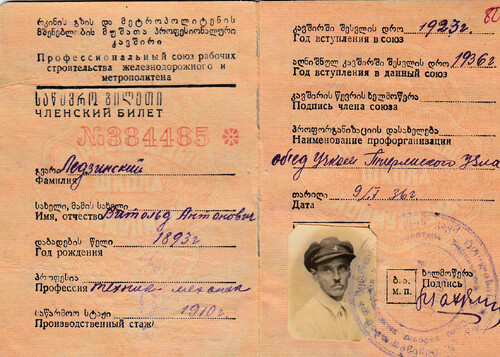 რკინის გზის და მეტროპოლიტენის
მშენებლობის მუშათა პროფესიონალური
კავშირი
Профессиональный союз рабочих
строительства железнодорожного и
метрополитена
საწევრო ბილეთი
ЧЛЕНСКИЙ БИЛЕТ
№384485
გვარი Ледзинский
Фамилия
სახელი, მამის სახელი
Имя, отчество Витольд Антонович
დაბადების წელი 1893 г
Год рождения
პროფესია
Профессия техник-механик
საწარმოო სტაჟი 1910 г
Производственный стаж
კავშირში შესვლის დრო 1923 г.
Год вступления в союз
აღნიშნულ კავშირში შესვლის დრო 1936 г.
Год вступления в данный союз
კავშირის წევრის ხელმოწერა
Подпись члена союза
პროფორგანიზაციის დასახელება
Наименование профорганизации
Узла
თარიღი 9/I 36 г.
Дата
ბ. ა.
М. П.
ხელმოწერა
Подпись